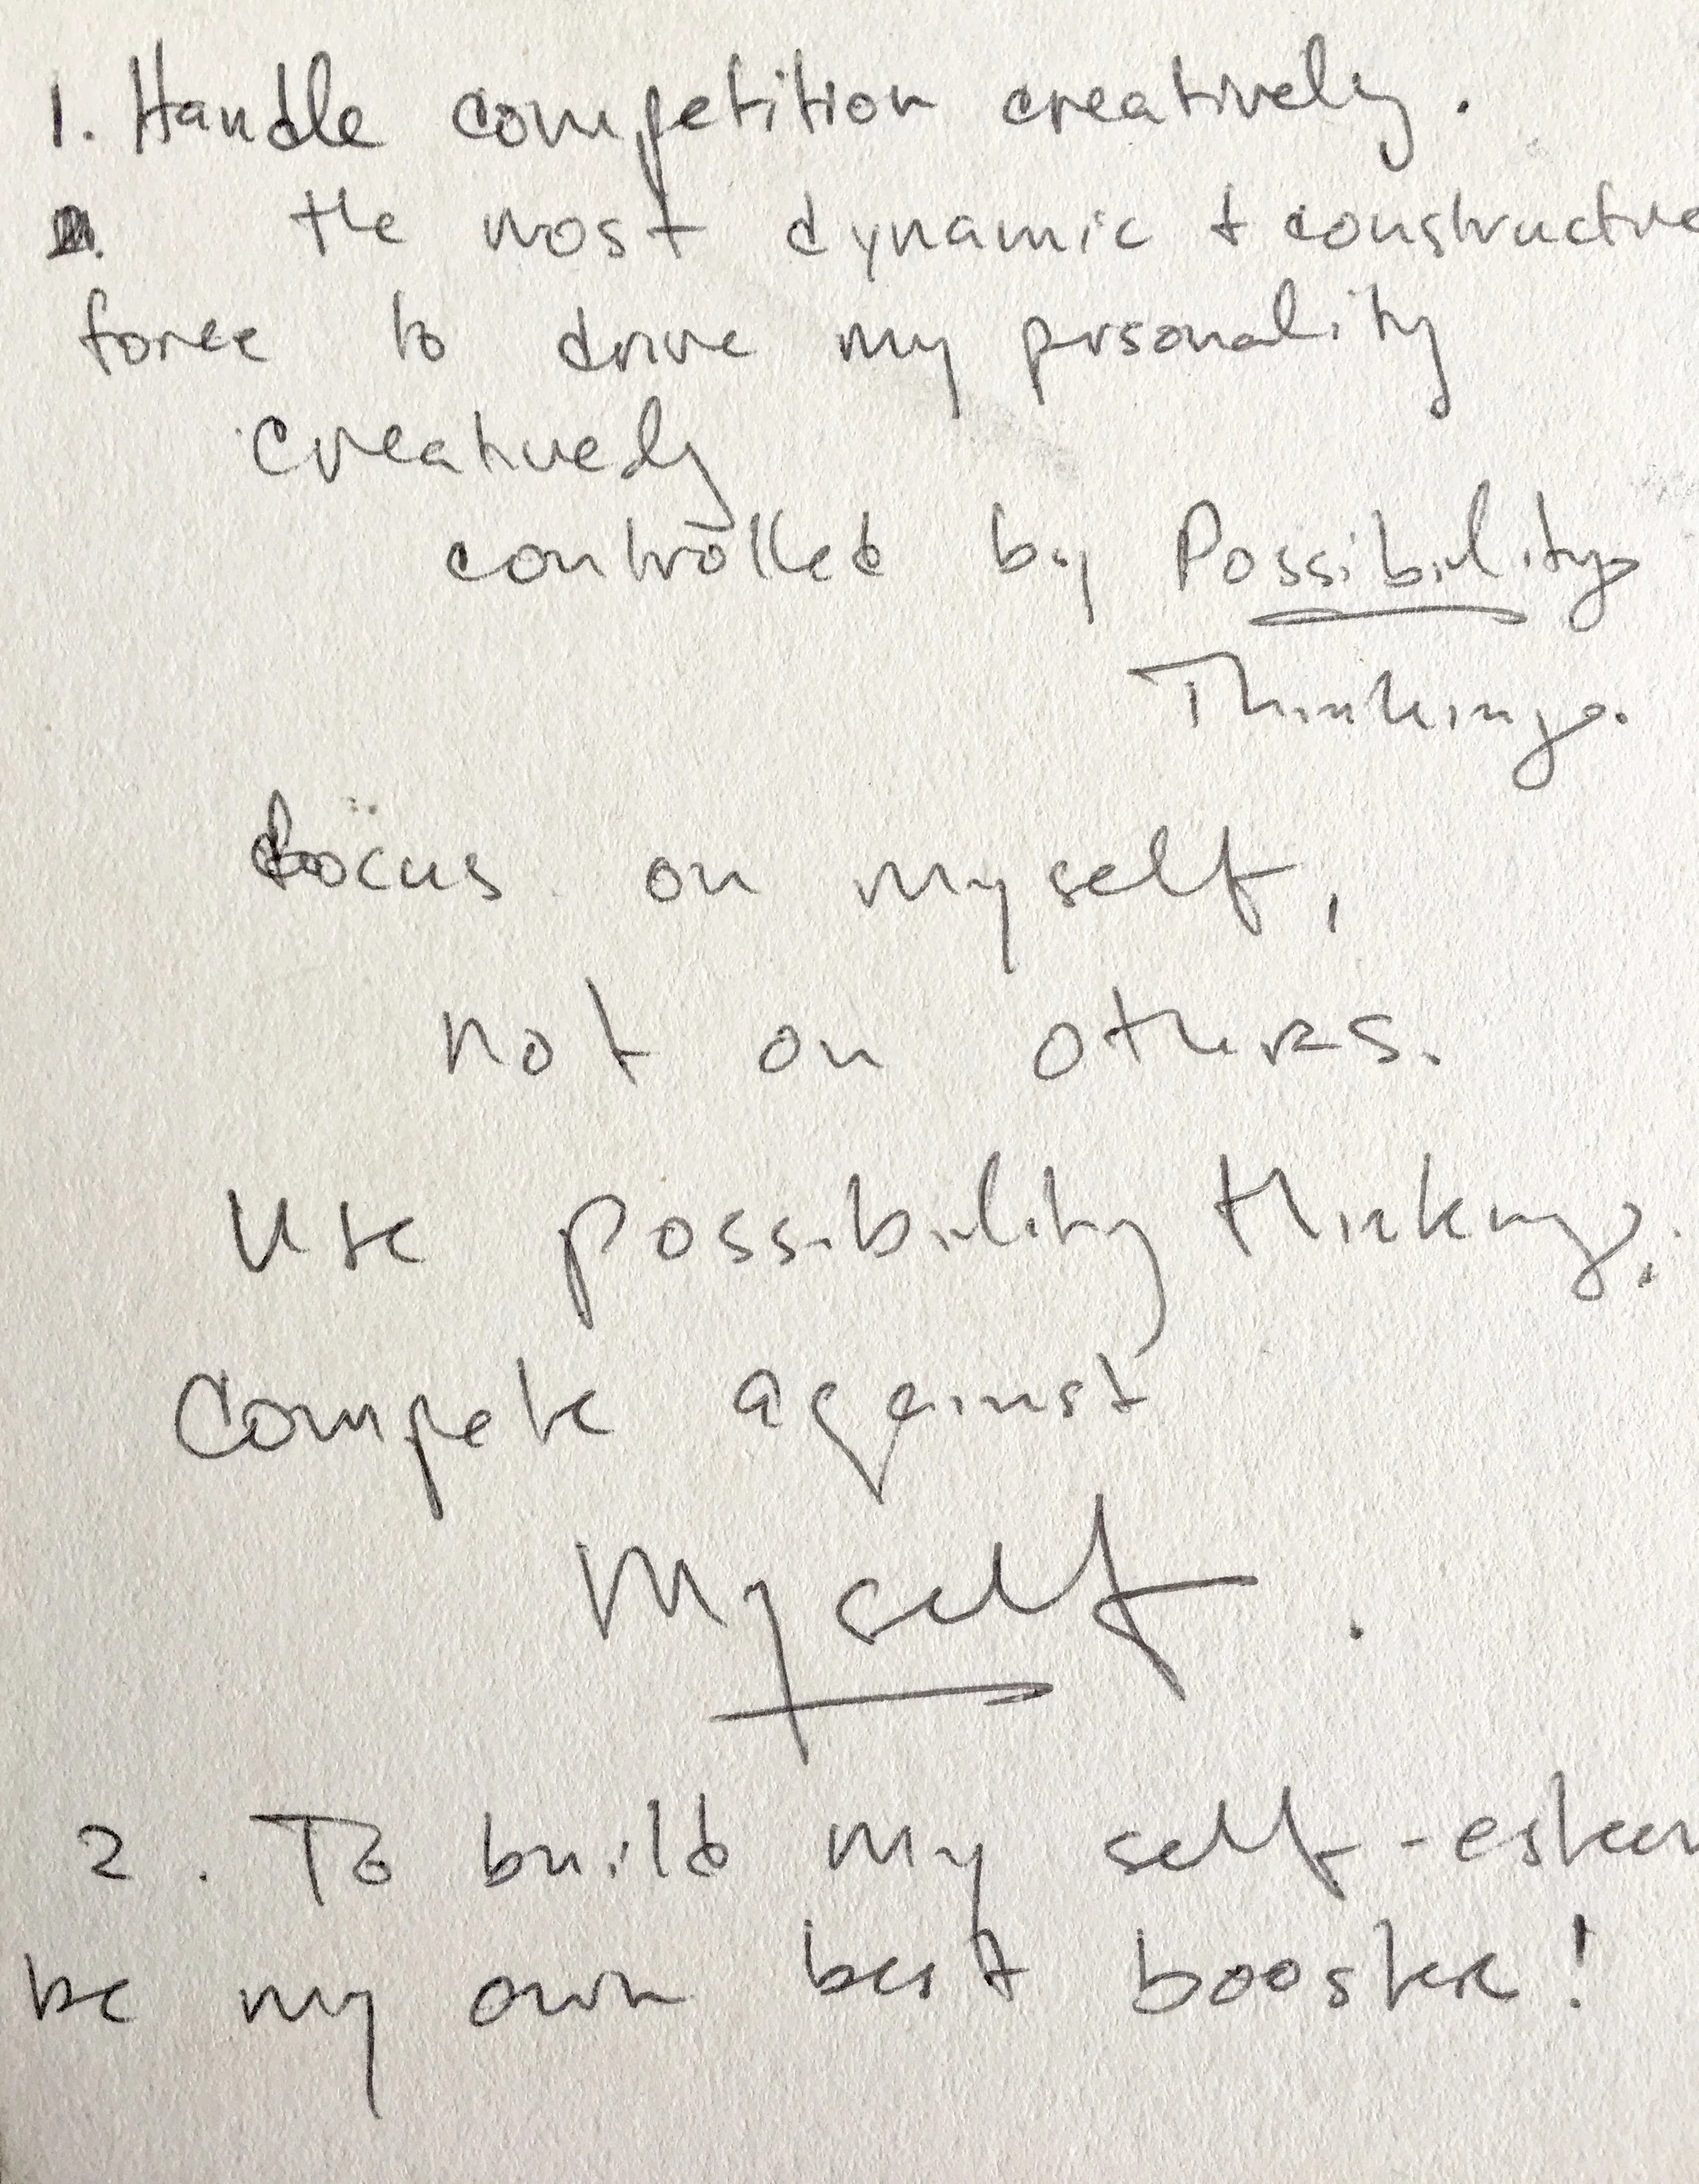 1. Handle competition creatively.
the most dynamic & constructive
force to drive my prsonality
creatively
controlled by Possibility
Thinking.
focus on myself,
not on others.
Use possibility thinking.
Compete against
Myself.
2. To build my self-esteem
be my own best booster!